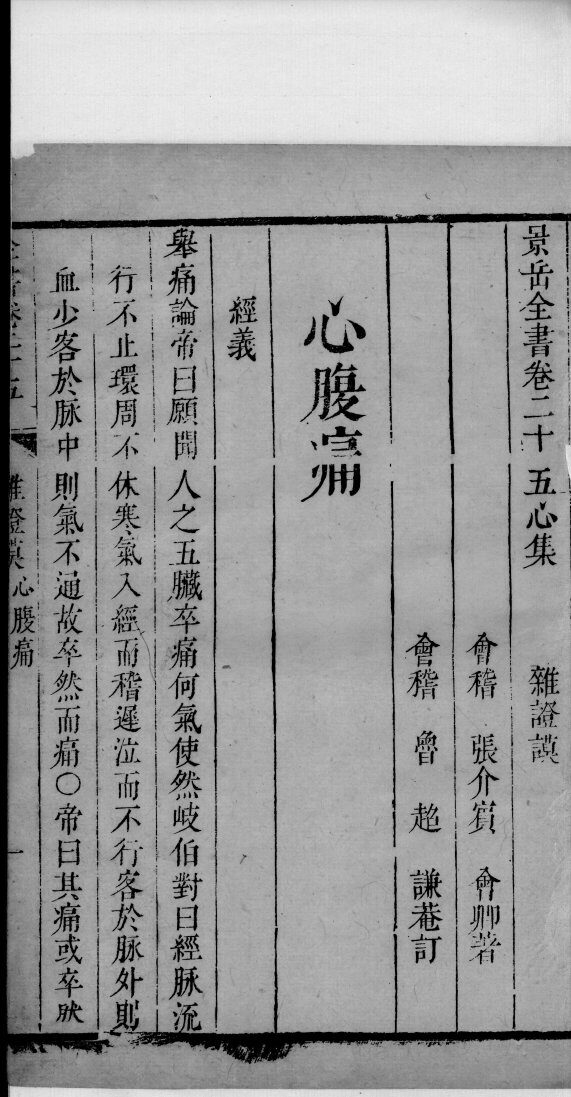 景岳全書卷二十五心集 雜證謨
會稽 張介賓 會卿著
會稽 魯超 謙菴訂
心腹痛
經義
舉痛論帝曰願聞人之五臟卒痛何氣使然岐伯對曰經脉流
行不止環周不休寒氣入經而稽遲泣而不行客於脉外則
血少客於脉中則氣不通故卒然而痛〇帝曰其痛或卒然
全書卷二十五 雜證謨心腹痛 一